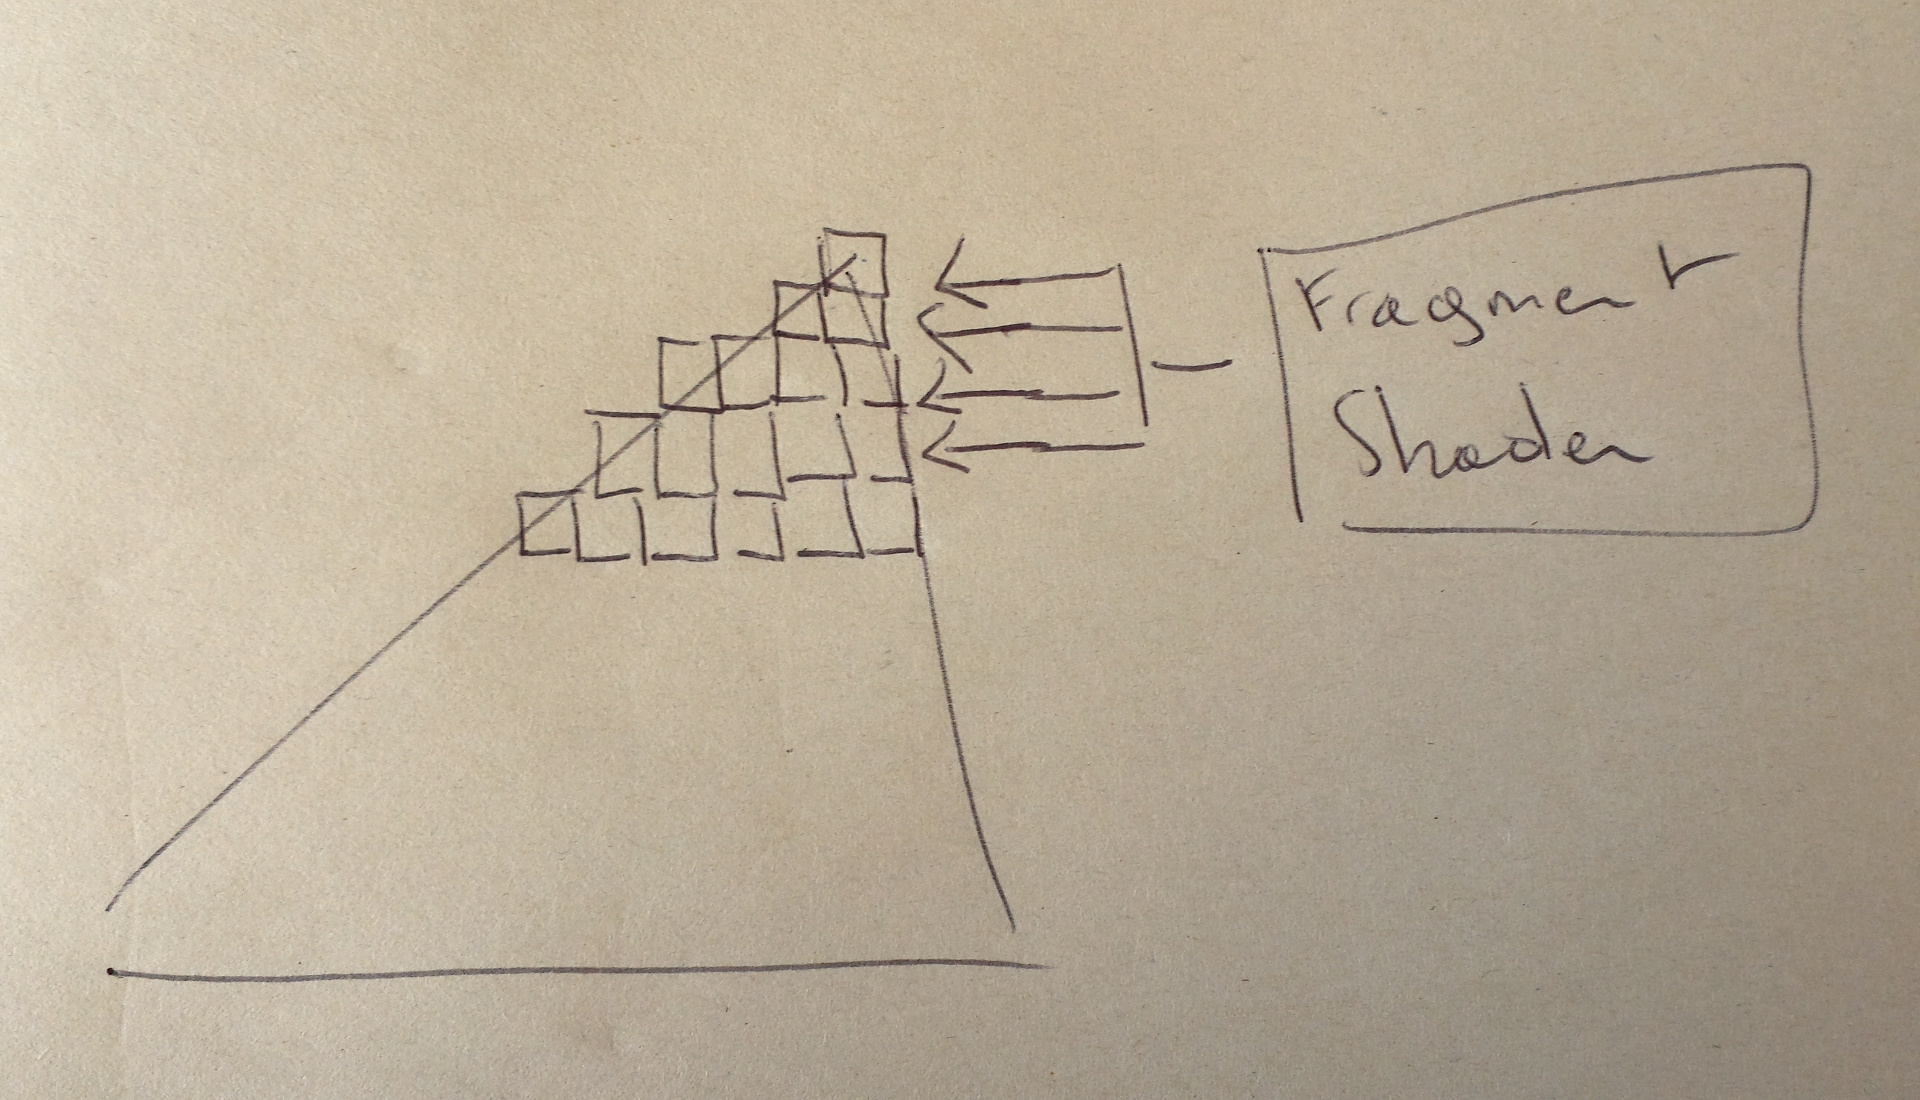 Fragment
Shader